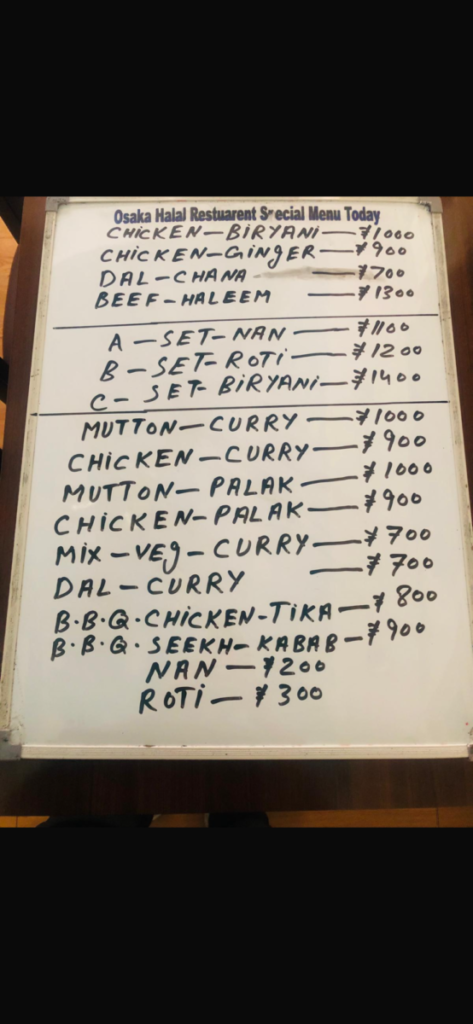 Osaka Halal Restuarent Special Menu Today
CHiCKEN-BiRYANi-¥1000
CHiCKEN-GiNgER-¥900
DAL-CHANA-¥700
BEEF-HALEEM-¥1300
A-SET-NAN-¥1100
B-SET-ROTi-¥1200
C-SET-BiRYANi-¥1400
MUTTON-CURRY-¥1000
CHiCKEN-CURRY-¥900
MUTTON-PALAK-¥1000
CHiCKEN-PALAK-¥900
MiX-VEg-CURRY-¥700
DAL-CURRY-¥700
B.B.Q.CHiCKEN-TiKA-¥800
B.B.Q.SEEKH-KABAB-¥900
NAN-¥200
ROTi-¥300